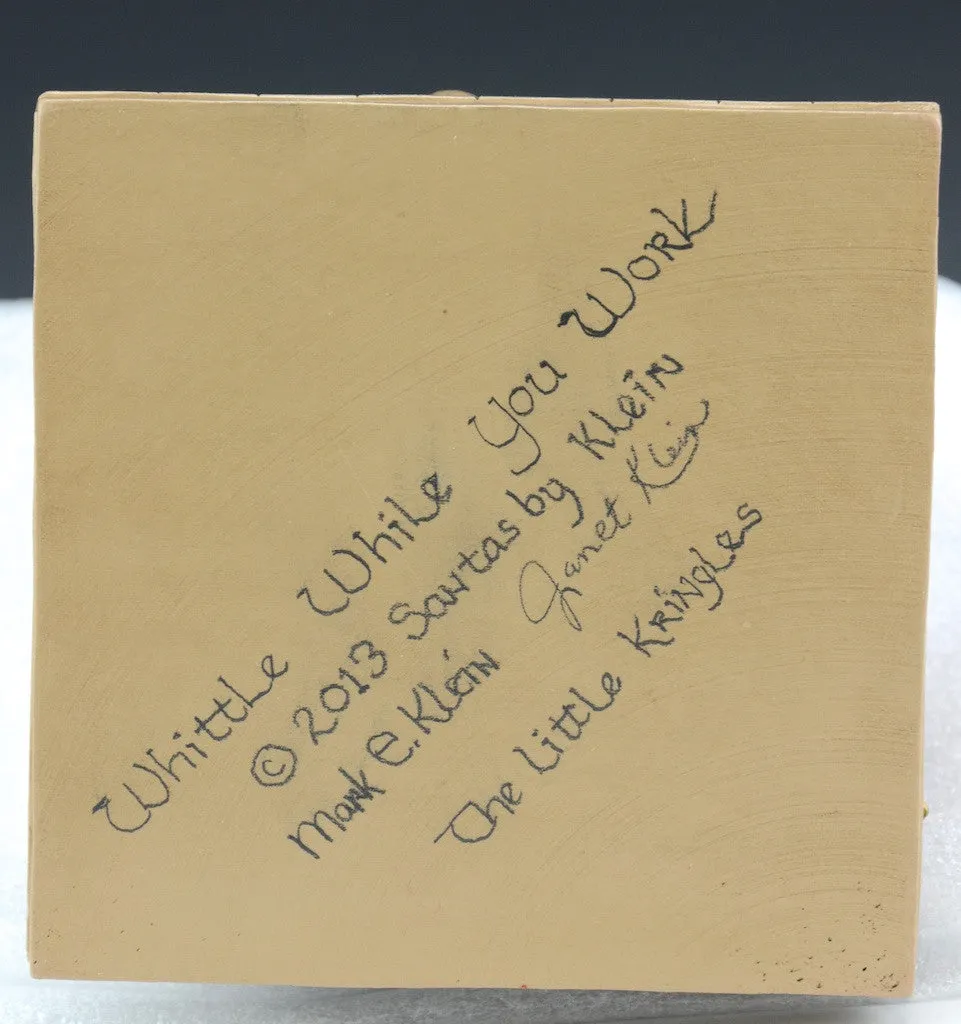 Whittle While You Work
© 2013 Santas by Klein
Mark E. Klein Janet Klein
The Little Kringles